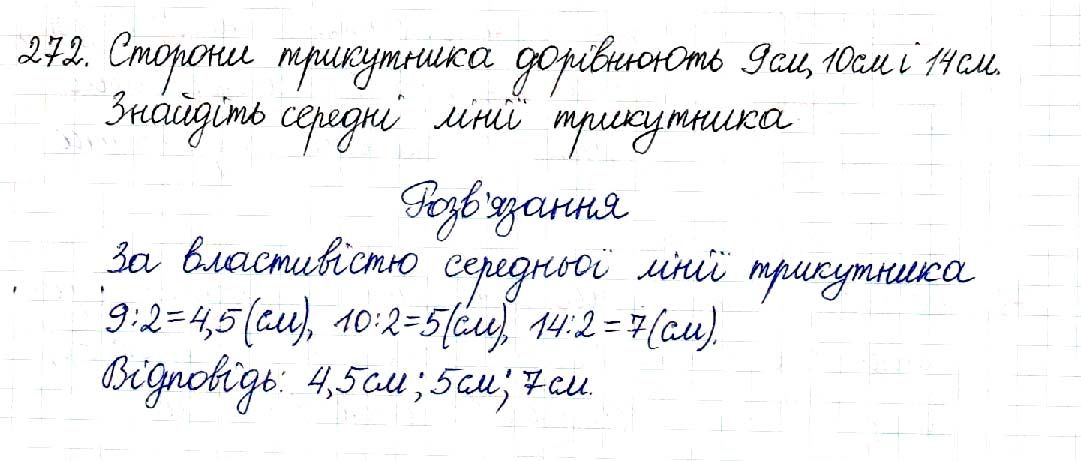 272. Сторони трикутника дорівнюють 9см, 10см і 14см.
Знайдіть середні лінії трикутника
Розв'язання
За властивістю середньої лінії трикутника
9:2=4,5(см), 10:2=5(см), 14:2=7(см).
Відповідь: 4,5см; 5см; 7см.